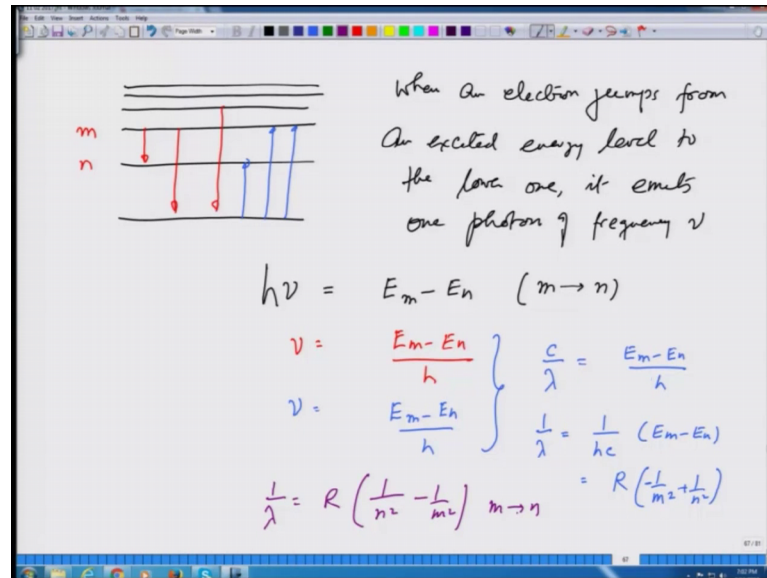 File Edit View Insert Actions Tools Help
Page Width
m
n
When an electron jumps from
an excited energy level to
the lower one, it emits
one photon of frequency ν
hν = Em - En (m → n)
ν = Em - En / h
ν = Em - En / h
c / λ = Em - En / h
1 / λ = 1 / hc (Em - En)
= R (-1/m² + 1/n²)
1 / λ = R (1/n² - 1/m²) m → n
67 / 81
67
7:02 PM